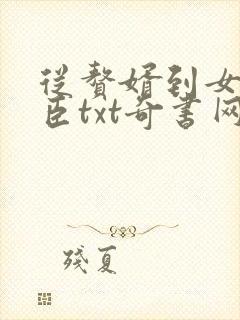 从赘婿到女
臣txt奇书网
残夏